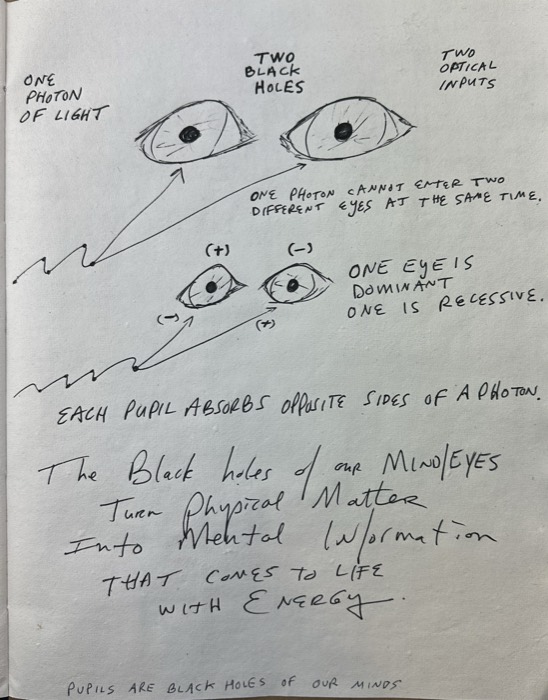 ONE
PHOTON
OF LIGHT
TWO
BLACK
HOLES
TWO
OPTICAL
INPUTS
ONE PHOTON CANNOT ENTER TWO
DIFFERENT EYES AT THE SAME TIME.
(+) (-)
ONE EYE IS
DOMINANT
ONE IS RECESSIVE.
(-) (+)
EACH PUPIL ABSORBS OPPOSITE SIDES OF A PHOTON.
The Black holes of our MIND/EYES
Turn Physical Matter
Into Mental Information
THAT COMES TO LIFE
WITH ENERGY.
PUPILS ARE BLACK HOLES OF OUR MINDS